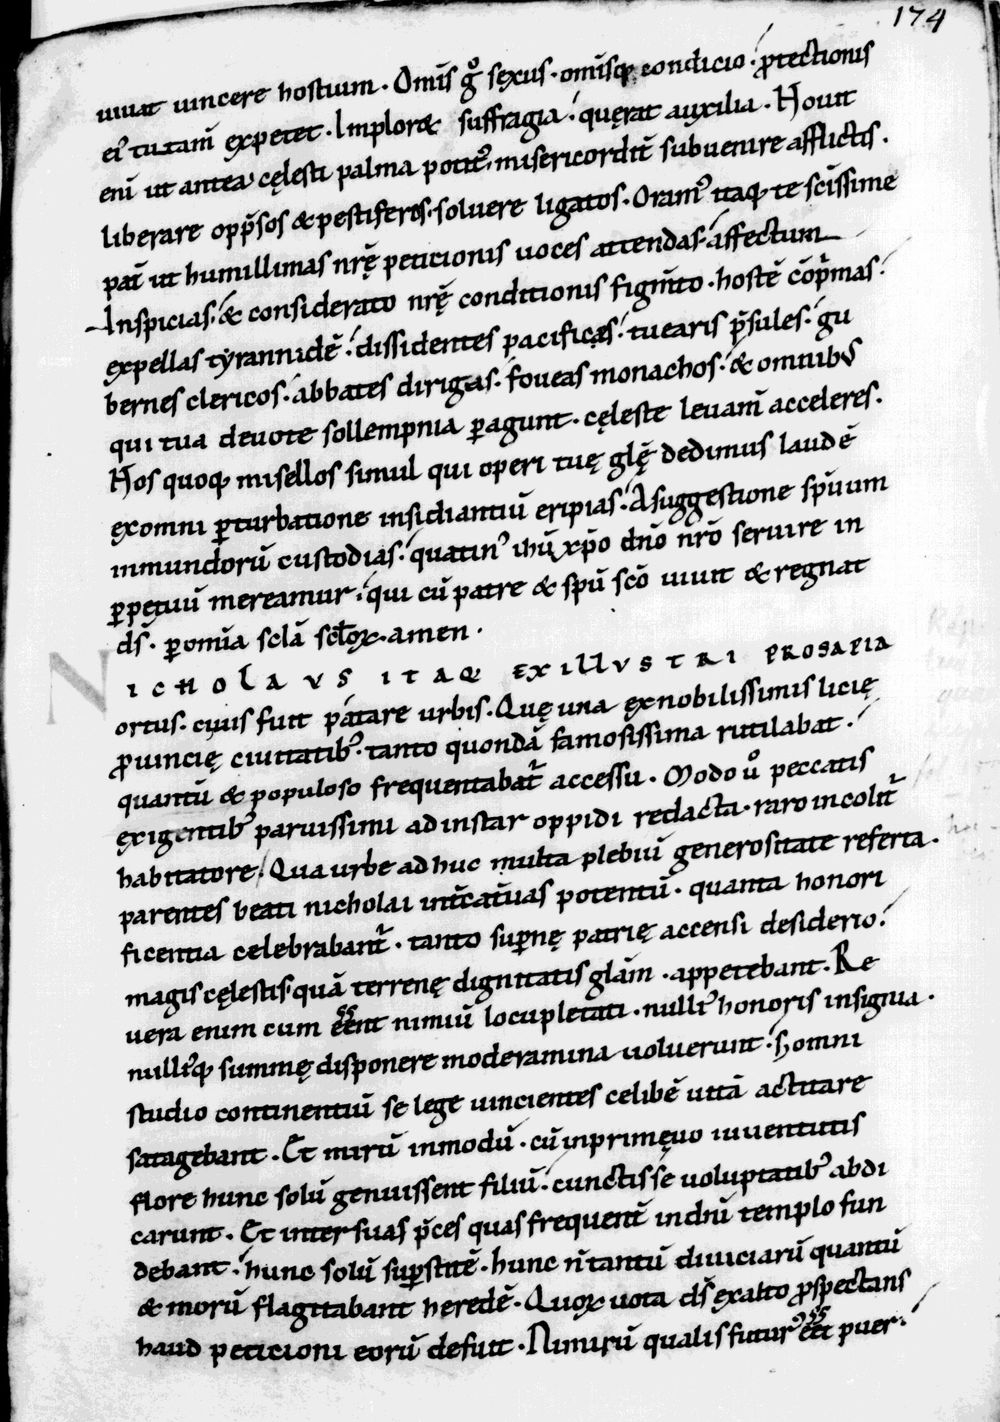 174
uiuat uincere hostium. Om̄is g̊ sexus. om̄isq; condicio. p̄tectionis
ei᾽ tutam̄ expetet. Implor& suffragia. quęrat auxilia. Nouit
enī ut antea cęlesti palma potit᾽. misericordit̄ subuenire afflictis.
liberare opp̄sos & pestiferos. soluere ligatos. Oram᾽ itaq; te sc̄issime
pat̄ ut humillimas nr̄ę peticionis uoces attendas. affectum
Inspicias. & considerato nr̄ę conditionis figm̄to. hostē cōp̄mas.
expellas tyrannidē. dissidentes pacifices. tuearis p̄sules. gu
bernes clericos. abbates dirigas. foueas monachos. & omnib᾽
qui tua deuote sollempnia ꝑagunt. cęleste leuam̄ acceleres.
Hos quoq; misellos simul qui operi tuę gl̄ę dedimus laudē
exomni ꝑturbatione insidiantiū eripias. A suggestione sp̄uum
inmundorū custodias. quatin᾽ ih̄u xp̄o dn̄o nr̄o seruire in
ꝑpetuū mereamur. qui cū patre & sp̄u sc̄o uiuit & regnat
ds̄. ꝑ om̄ia scl̄a scl̄oꝝ. amen.
NICHOLAVS ITAQ; EX ILLVSTRI PROSAPIA
ortus. cuius fuit patare urbis. Quę una ex nobilissimis licię
ꝓuincię ciuitatib᾽. tanto quondā famosissima rutilabat.
quantū & populoso frequentabat̄ accessu. Modo ů peccatis
exigentib᾽ paruissimi ad instar oppidi redacta. raro incolit̄
habitatore. Qua urbe adhuc multa plebiū generositate referta.
parentes beati nicholai int̄ cat̄uas potentū. quanta honori
ficentia celebrabant̄. tanto suꝑnę patrię accensi desiderio.
magis cęlestis quā terrenę dignitatis gl̄am. appetebant. Re
uera enim cum eent nimiū locupletati. nulli᾽ honoris insignia.
nulli᾽q; summę disponere moderamina uoluerunt. S; omni
studio continentiū se lege uincientes celibē uitā actitare
satagebant. Et mirū inmodū. cū inprimęuo iuuentutis
flore hunc solū genuissent filiū. cunctis se uoluptatib᾽ abdi
carunt. Et inter suas p̄ces quas frequent̄ in dn̄i templo fun
debant. hunc solū suꝑstitē. hunc n̄ tantū diuiciarū quantū
& morū flagitabant heredē. Quoꝝ uota ds̄ exalto ꝓspectans
haud peticioni eorū defuit. Nimirū qualis futur᾽ eet puer.